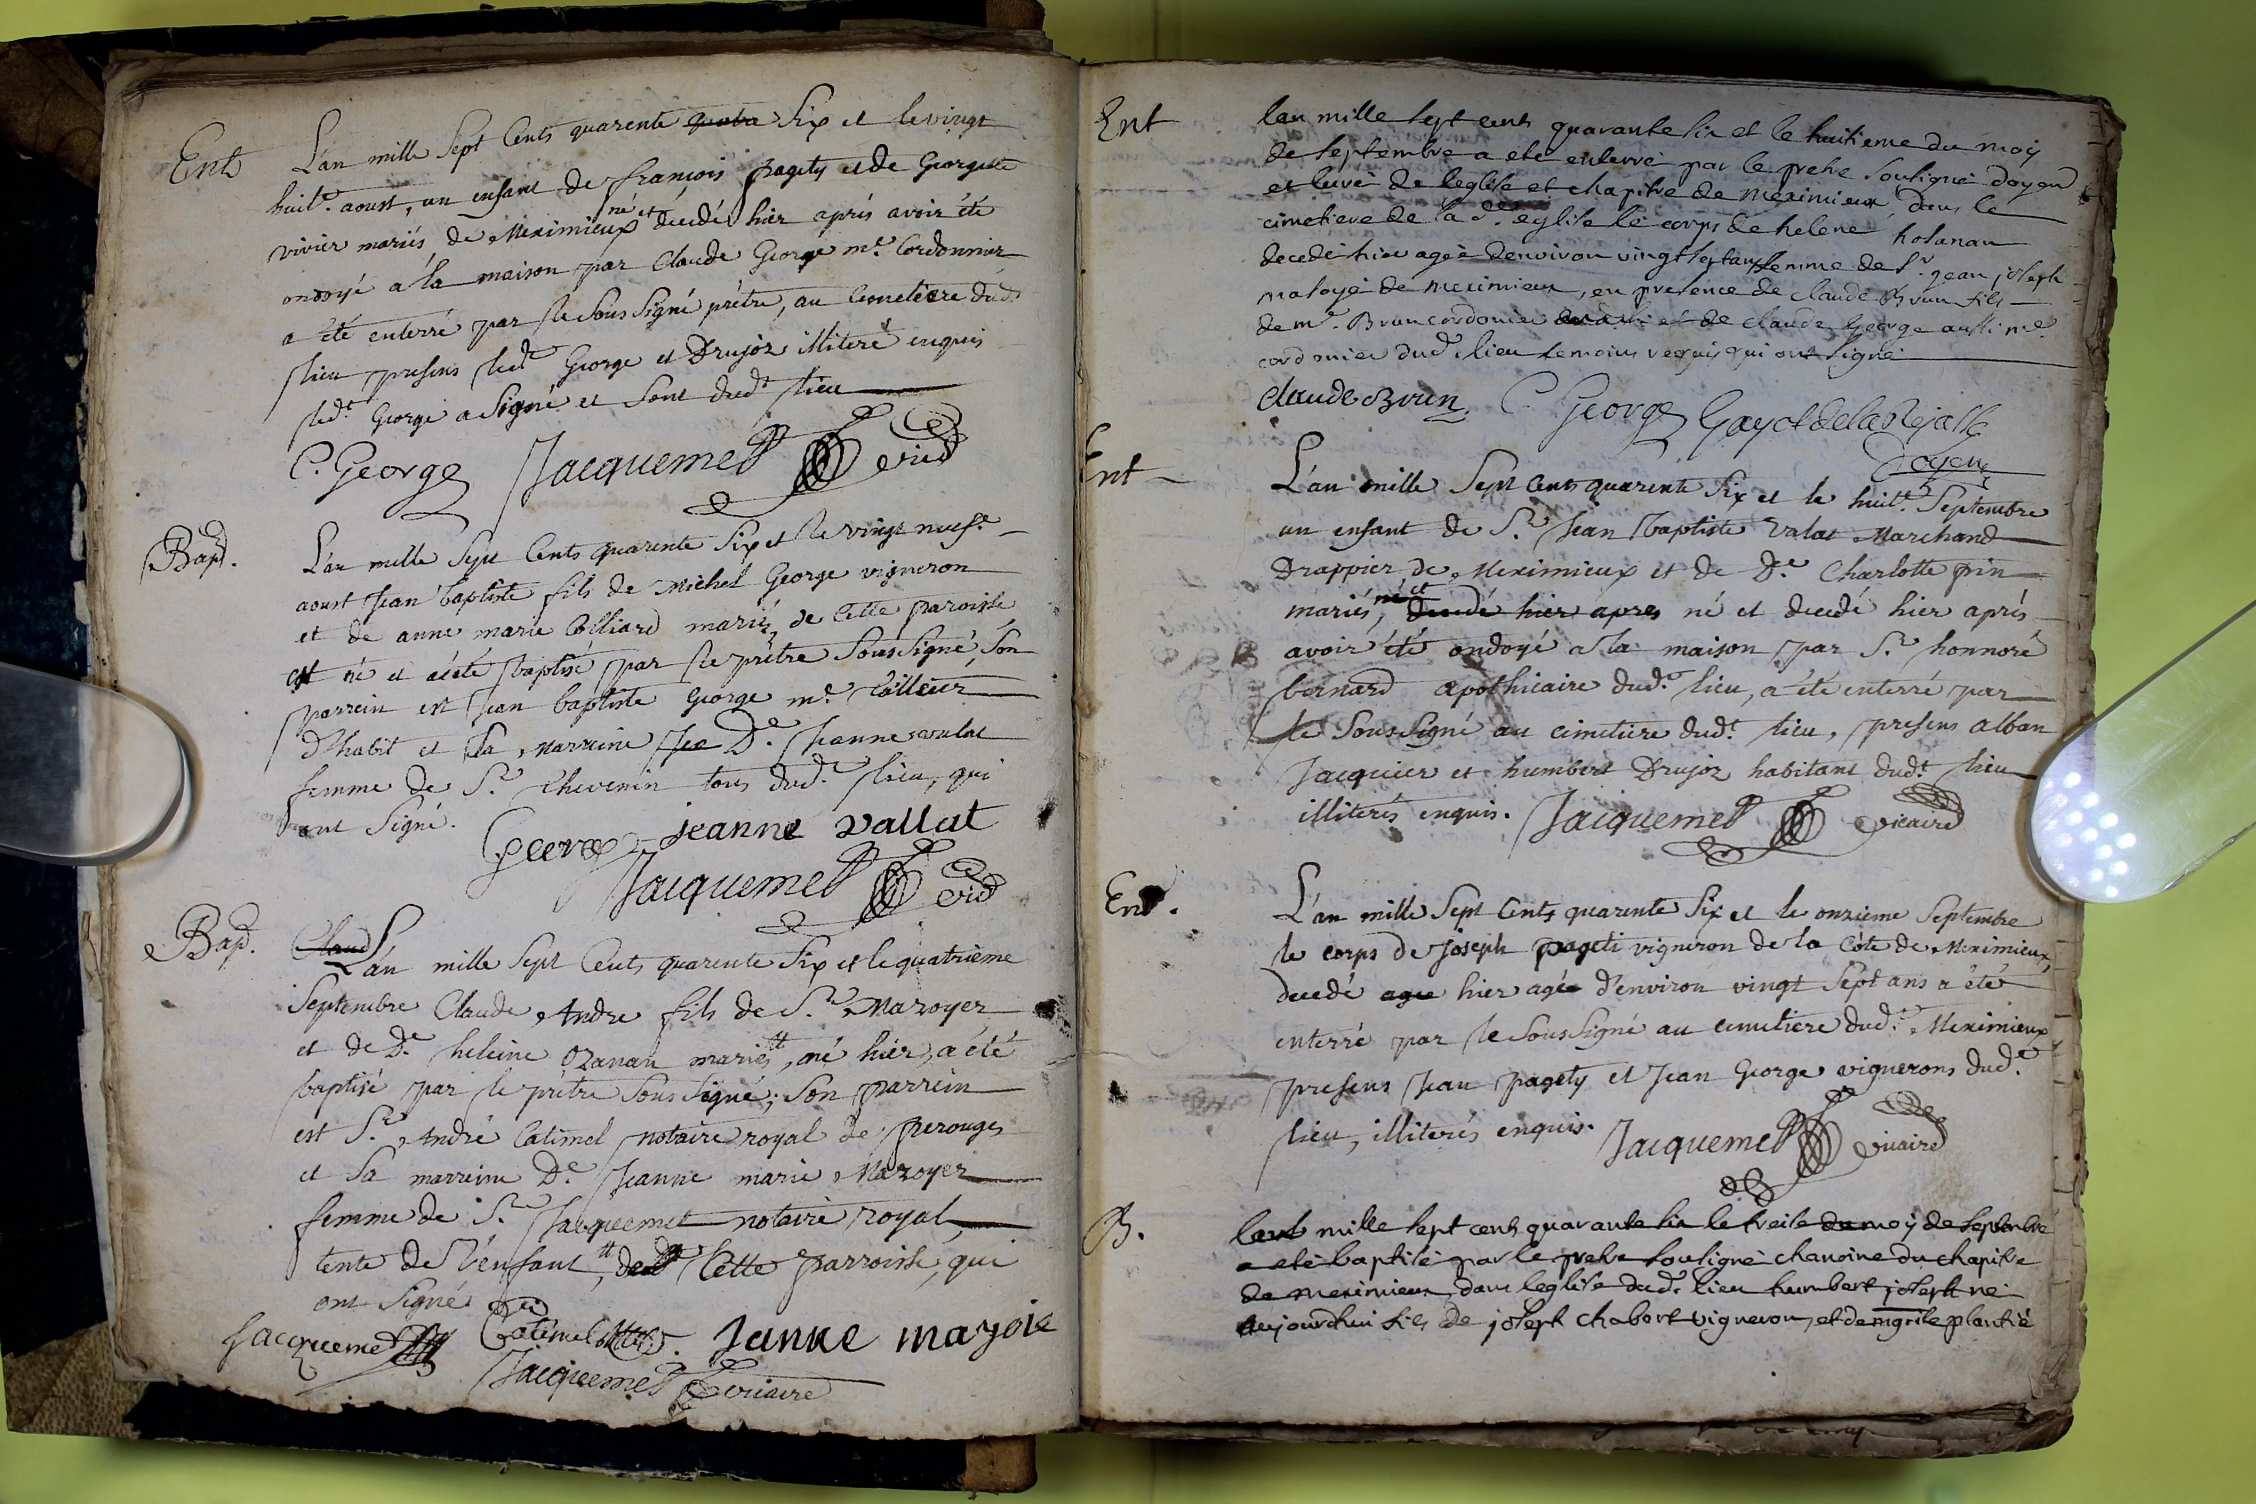 Ent
L'an mille Sept Cents quarente Six et le vingt
huit.e aoust, un enfant de françois pagety et de Georgette
vivier mariés de Meximieux né et decedé hier aprés avoir été
ondoyé a la maison par Claude George m.e Cordonnier
a été enterré par le Sous Signé prêtre, au Cimetiere dud.t
lieu presens led.t George et Drujoz illiteré enquis
led.t George a Signé et sont dud.t lieu
C. George Jacquemet vic.e
Bapt.
L'an mille Sept Cents quarente Six et le vingt neuf.e
aoust Jean baptiste fils de Michel George vigneron
et de anne marie Colliard mariés de Cette paroisse,
est né et a été baptisé par le prêtre Sous Signé, Son
parrein est Jean baptiste George m.e tailleur
d'habit et Sa Marreine D.e Jeanne
femme de S.r Chevenin tous dud.t lieu, qui
ont Signé.
George jeanne vallat
Jacquemet vic.e
Bap.
L'an mille Sept Cents quarente Six et le quatrieme
Septembre Claude Andre fils de S.r Mazoyer
et de D.e heleine Ozanan mariés, né hier, a été
baptisé par le prêtre Sous Signé; Son parrein
est S.r André Catimel notaire royal de Perouges
et Sa marreine D.e Jeanne marie Mazoyer
femme de S.r Jacquemet notaire royal,
tente de l'enfant, de Cette parroisse, qui
ont Signé
Jacquemet Catimel Janne mazoie
Jacquemet vicaire
Ent
lan mille sept cents quarante six et le huitieme du moy
de septembre a eté enterré par le pretre soussigné doyen
et curé de leglise et chapitre de meximieux, dans le
cimetiere de la d.e eglise le corps de helene hosanan
decedé hier agée denviron vingt sept ans femme de S.r jean joseph
masoyé de meximieux, en presence de claude Brun fils
de m.e Brun cordonier et de claude George aussi m.e
cordonier dud.t lieu temoins requis qui ont signé
claude Brun C. George Gayot de la Rejasse
Doyen
Ent
L'an mille Sept Cents quarente Six et le huit.e Septembre
un enfant de S.r Jean baptiste valat Marchand
Drappier de Meximieux et de D.e Charlotte pin
mariés, né et decedé hier apres né et decedé hier aprés
avoir été ondoyé a la maison par S.r honnoré
bernard apothicaire dud.t lieu, a été enterré par
le Sous Signé au cimetiere dud.t lieu, presens alban
Jacquier et humbert Drujoz habitant dud.t lieu
illiterés enquis. Jacquemet vicaire
Ent.
L'an mille Sept Cents quarente Six et le onzieme Septembre
le corps de Joseph pageti vigneron de la Côte de Meximieux,
decedé agée hier agée d'environ vingt Sept ans a été
enterré par le Sous Signé au cimetiere dud.t Meximieux
presens Jean pagety et Jean George vignerons dud.t
lieu, illiterés enquis. Jacquemet vicaire
B.
mille sept cents quarante six le treise du moy de septembre
a eté baptisé par le pretre soussigné chanoine du chapitre
de meximieux, dans leglise dud.t lieu humbert joseph né
aujourdhui fils de joseph chabert vigneron, et de plantié